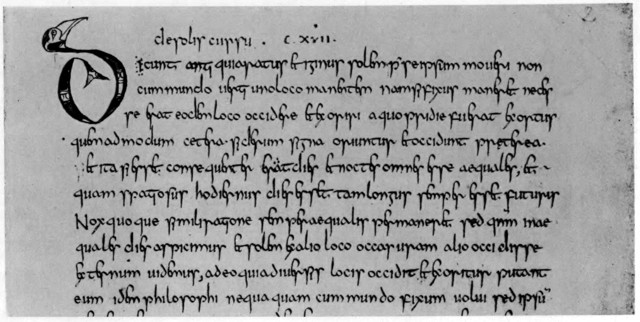 de solis cursu . C. XVII.
Dicunt antq qui aratus et iginus solem per se ipsum moueri non
cum mundo uerti uno loco manentem nam si fixus maneret neces
se erat eodem loco occidere et exoriri a quo pridie fuerat exortus
quemadmodum cetera siderum signa oriuntur et occidunt preterea.
et ita si esset. consequenter erat dies et noctes omnes esse aequales, et.
quam spatiosus hodiernus dies esset tam longus semper esset futurus
Nox quoque simili ratione semper aequalis permaneret. sed qnm inae
quales dies aspicimus et solem alio loco occasurum alio occidisse
hesternum uidemus, adeo quia diuersis locis occidit et exoritur putant
eum idem philosophi nequaquam cum mundo fixum uolui sed ipsū
2